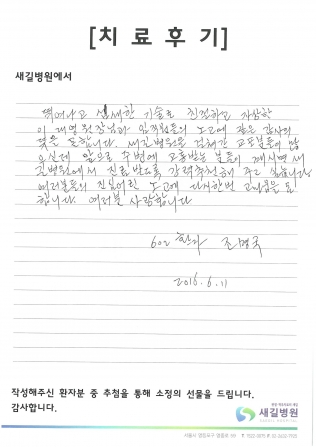 [치료후기]
새길병원에서
뛰어나고 섬세한 기술로 친절하고 자상한
이대영 원장님과 임직원들의 노고에 깊은 감사의
뜻을 전합니다. 새길병원을 거쳐간 교포분들이 많
으신데 앞으로 주변에 고통받는 분들이 계시면 새
길병원에서 진료받도록 강력추천해 주고 싶습니다
여러분들의 진심어린 노고에 다시한번 고마움을 표
합니다. 여러분 사랑합니다
602 환자 조명국
2016. 6. 11
작성해주신 환자분 중 추첨을 통해 소정의 선물을 드립니다.
감사합니다.
새길병원
SAEGIL HOSPITAL
서울시 영등포구